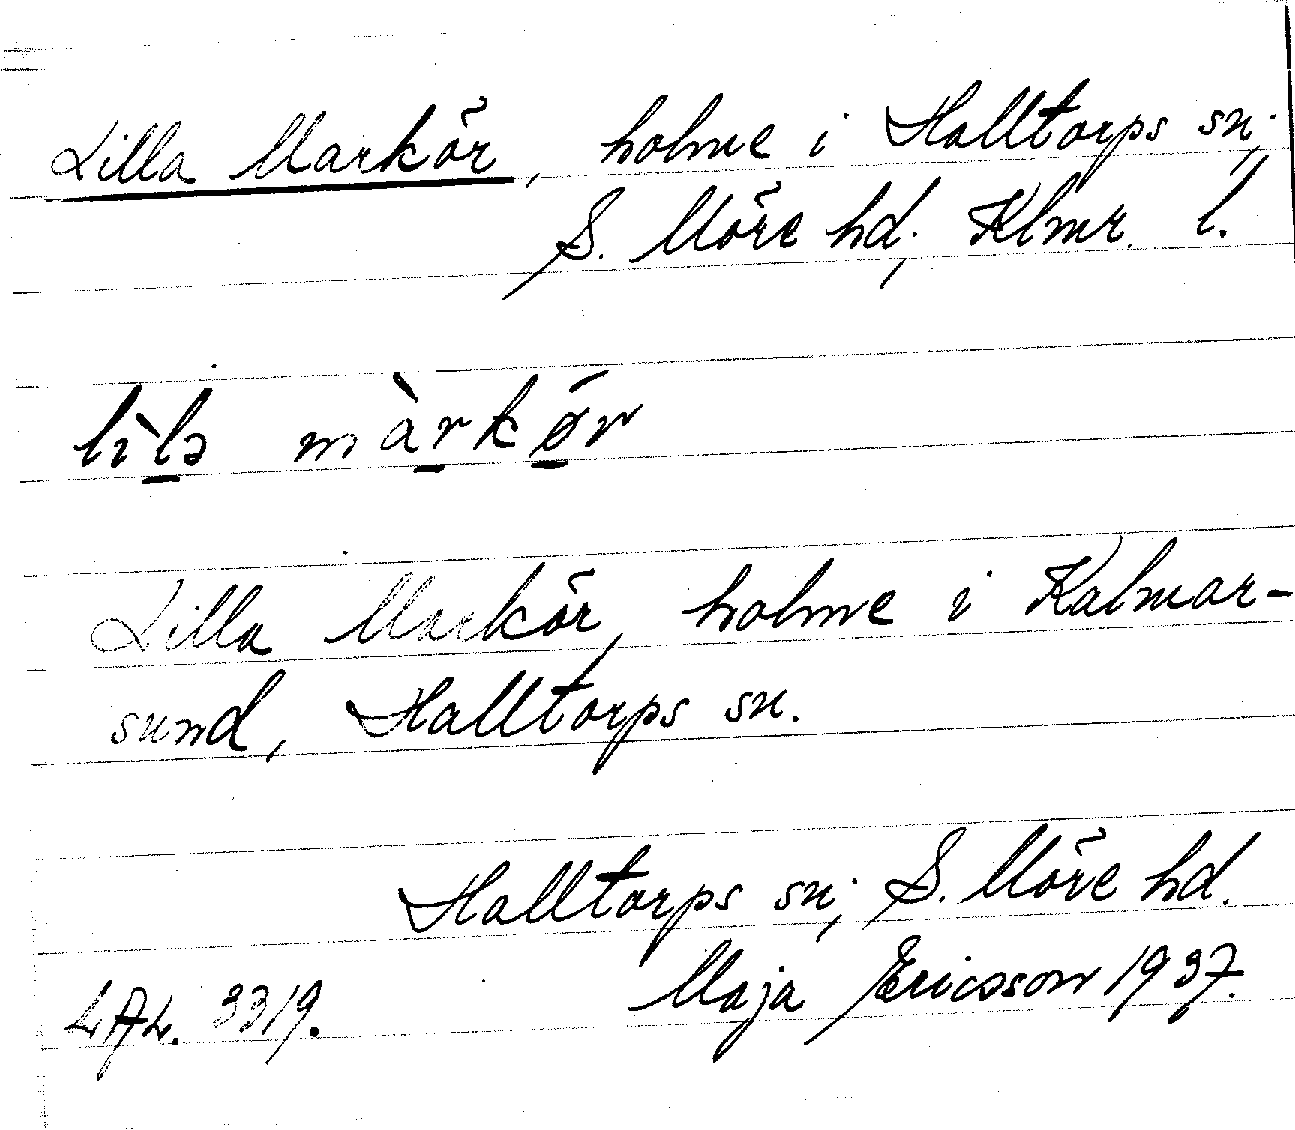 Lilla Markör, holme i Halltorps sn;
S. Möre hd; Klmr. l.
lìlə màrkǿr
Lilla Markör, holme i Kalmar-
sund, Halltorps sn.
Halltorps sn; S. Möre hd.
LAL. 3319. Maja Ericsson 1937.